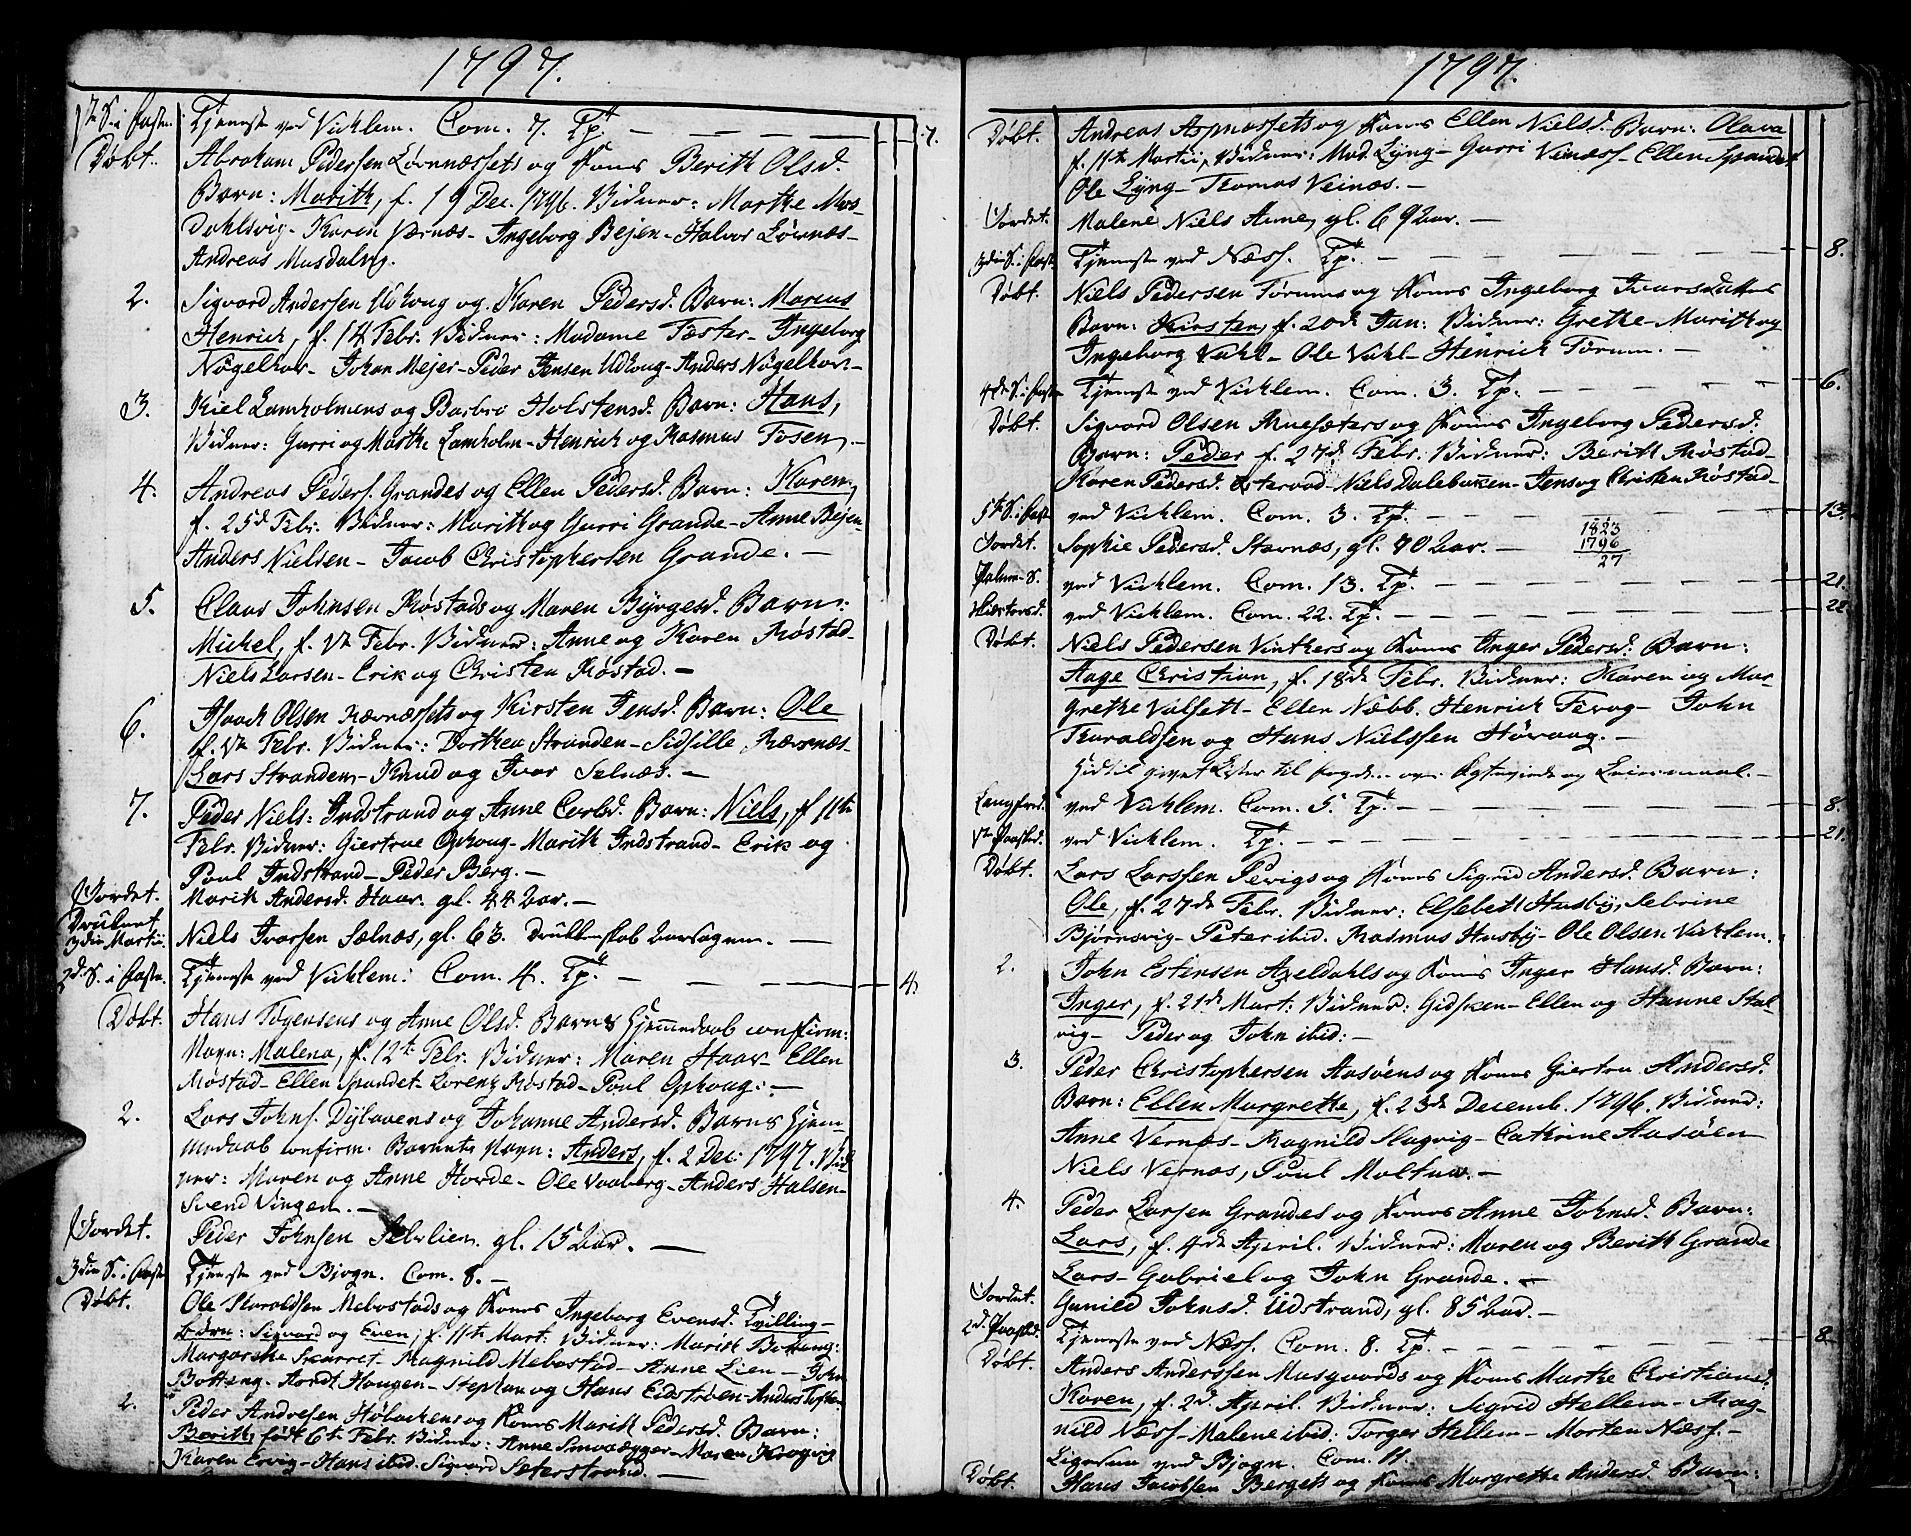 1797.
1ste S. i Fasten. Tjeneste ved Vicklem. Com. 7. Tp. 7.
Døbt. Abraham Pedersen Lørnæssets og Kones Berith Olsd.
Barn: Marith, f. 19 Dec. 1796. Vidner: Marthe Mus-
Dahlsvig - Karen Værnæs - Ingeborg Bejen - Halvor Lørnæs -
Andreas Musdalsvig.
2. Sigvard Andersen Udhoug og Karen Pedersd. Barn: Marcus
Henrich, f. 14 Febr. Vidner: Madame Tester - Ingeborg
Nøgelhov - Johan Mejer - Peder Jensen Udhoug - Anders Nøgelhov -
3. Kiel Lamholmens og Barbro Holstensd. Barn: Hans,
Vidner: Gurri og Marthe Lamholm - Henrich og Rasmus Tosen -
4. Andreas Peders. Grandes og Ellen Pedersd. Barn: Karen,
f. 25de Febr. Vidner: Marith og Gurri Grande - Anne Bejen -
Anders Nielsen - Jacob Christophersen Grande. -
5. Claus Johnsen Røstads og Maren Byrgesd. Barn:
Michel, f. 1ste Febr. Vidner: Anne og Karen Røstad -
Niels Larsen - Erik og Christen Røstad. -
6. Isaach Olsen Rævnæssets og Kirsten Jensd. Barn: Ole
f. 1ste Febr. Vidner: Dorthea Stranden - Sidsille Rævnæs -
Lars Stranden - Knud og Ivar Selnæs. -
7. Peder Niels: Indstrand og Anne Carlsd. Barn: Niels, f 11te
Febr. Vidner: Giertrue Ophoug - Marith Indstrand - Erik og
Poul Indstrand - Peder Berg. -
Jordet. Marith Andersd. Haar. gl. 44 Aar. -
Druknet
3die Martii. Niels Ivarsen Sælnæs, gl. 63.
2d. S. i Faste. Tjeneste ved Vicklem: Com. 4. Tp. 4.
Døbt. Hans Togensens og Anne Olsd. Barns Hjemmedaab confirm:
Navn: Malena, f. 12te Febr. Vidner: Maren Haar - Ellen
Røstad - Ellen Spandet - Lorentz Røstad - Poul Ophoug: -
2. Lars Johns. Dybavens og Johanne Andersd. Barns Hjem-
medaab confirm. Barnets Navn: Anders, f. 2 Dec: 1797. Vid-
ner: Maren og Anne Hovde - Ole Vaaberg - Anders Halsen -
Svend Vingen. -
Jordet. Peder Johnsen Selvlien. gl. 15 Aar. -
3die S. i Faste Tjeneste ved Bjugn. Com. 8. -
Døbt. Ole Haraldsen Mebostads og Kones Ingeborg Evensd. Tvilling-
Børn: Sigvard og Even, f. 11te Mart: Vidner: Marith Botteng:
Margarethe - Ragnild Mebostad - Anne Lien - John
Botteng - Arndt Haugen - Stephan og Hans Eidstrøen - Anders
2. Peder Andresen Høbackens og Kones Marith Pedersd. Barn:
Berith, født 6te Febr. Vidner: Anne - Maren Krogvig
Karen Ervig - Hans ibid. Sigvard Seterstrand. -
1797.
Døbt. Andreas Aspnæssets og Kones Ellen Nielsd. Barn: Olava
f. 11te Martii, Vidner: Mad. Lÿng - Gurri Veinæss - Ellen Spandet
Ole Lÿng - Thomas Veinæs. -
Jordet. Malene Niels Anne, gl. 69 Aar. -
3die S. i Faste. Tjeneste ved Næss. Tp. 8.
Døbt. Niels Pedersen Tørums og Kones Ingeborg Ivarsdatters
Barn: Kirsten, f. 20de Jan: Vidner: Grethe - Marith og
Ingeborg Vahl - Ole Vahl - Henrich Tørum. -
4de S. i Faste Tjeneste ved Vicklem. Com. 3. Tp. 6.
Døbt. Sigvard Olsen Ruesæters og Kones Ingeborg Pedersd.
Barn: Peder f. 27de Febr: Vidner: Berith Røstad -
Karen Pedersd. Østeraad - Niels Dalebakken - Jens og Christen Røstad -
5te S. i Faste ved Vicklem. Com. 3. Tp. 13.
Jordet. Sophie Pedersd. Starnæs, gl. 70 Aar. -
1823
1796
27
Palme-S. ved Vicklem. Com. 13. Tp. 21.
Skiertorsd. ved Vicklem. Com. 22. Tp. 22.
Døbt. Niels Pedersen Vinthers og Kones Inger Pedersd. Barn:
Aage Christian, f. 18de Febr. Vidner: Karen og Mar-
grethe Valsett - Ellen Nebb. Henrich - John
Haraldsen og Hans Nielssen Høvaag. -
Hidtil givet Lister til Fogden over Ægteviede og Leiermaal. -
Langfred. ved Vicklem. Com. 5. Tp. 8.
1ste Paaskd. ved Vicklem. Tp. 21.
Døbt. Lars Larssen Revigs og Kones Sigrid Andersd. Barn:
Ole, f. 27de Febr. Vidner: Elsebeth Husby, Sebrine
Bjørnevig - Peter ibid. Rasmus Husby - Ole Olsen Vicklem.
2. John Estensen Azeldahls og Kones Inger Hansd. Barn:
Inger, f. 21de Mart: Vidner: Gidsken - Ellen og Hanne Stal-
vig - Peder og John ibid: -
3. Peder Christophersen Aasøens og Kones Giertru Andersd.
Barn: Ellen Margrethe, f. 23de Decemb. 1796. Vidner:
Anne Vernæs - Ragnild Slagvig - Cathrine Aasøen
Niels Vernæs, Poul Moltues. -
4. Peder Larsen Grandes og Kones Anne Johnsd. Barn:
Lars, f. 4de April. Vidner: Maren og Berith Grande
Lars - Gabriel og John Grande. -
Jordet. Gunild Johnsd. Udstrand, gl. 85 Aar. -
2d. Paaskd. Tjeneste ved Næss. Com. 8. Tp. 8.
Døbt. Anders Anderssen Musgaards og Kones Marthe Christiansd.
Karen, f. 2d. April. Vidner: Sigrid Hellem - Rag-
nild Næss - Malene ibid: Torger Hellem - Morten Næss. -
Ligesaa ved Bjugn. Com. 11.
Døbt. Hans Jacobsen Bergets og Kones Margrethe Andersd. Barn: